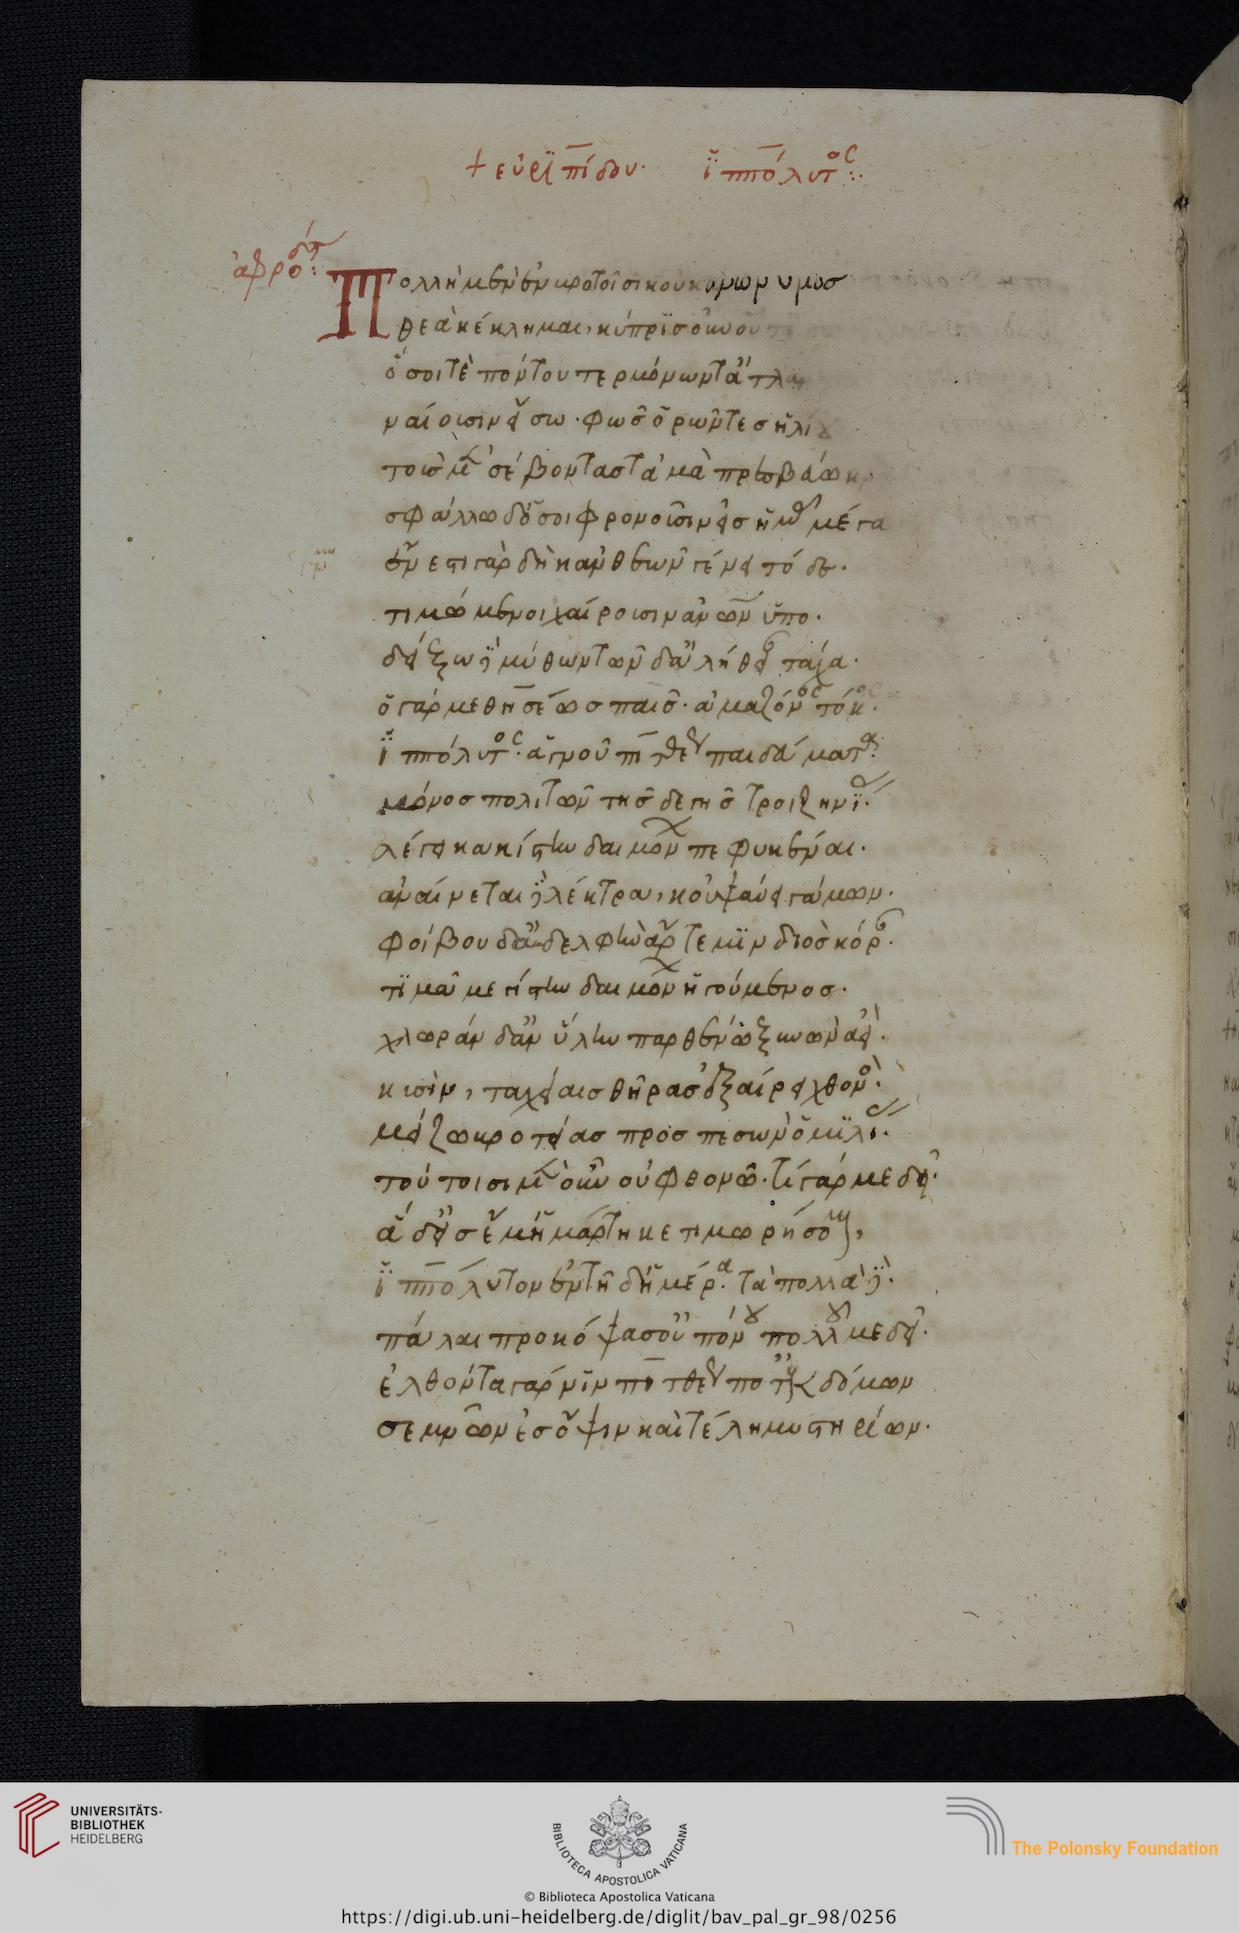 + εὐριπίδου· ἱππόλυτος:·
ἀφροδίτ:
Πολλὴ μὲν ἐν βροτοῖσι κοὐκ ἀνώνυμος
θεὰ κέκλημαι, κύπρις οὐνοῦ
ὅσοι τὲ πόντου τερμόνων τ' ἀτλ
ναίουσιν εἴσω· φῶς ὁρῶντες ἡλί
τοὺς μὲν σέβοντας τἀμὰ πρεσβεύω κρ
σφάλλω δ' ὅσοι φρονοῦσιν εἰς ἡμᾶς μέγα
ἔνεστι γὰρ δὴ κἀν θεῶν γένει τόδε·
τιμώμενοι χαίρουσιν ἀνων ὕπο·
δείξω δὲ μύθων τῶνδ' ἀλήθειαν τάχα·
ὁ γάρ με θησέως παῖς· ἀμαζόνος τόκος·
ἱππόλυτος· ἁγνοῦ πιτθέως παιδεύματα·
μόνος πολιτῶν τῆς δε γῆς τροιζηνίας·
λέγει κακίστην δαιμόνων πεφυκέναι·
ἀναίνεται δὲ λέκτρα, κοὐ ψαύει γάμων·
φοίβου δ' ἀδελφὴν ἄρτεμιν διὸς κόρην·
τιμᾶ μεγίστην δαιμόνων ἡγούμενος·
χλωρὰν δ' ἀν' ὕλην παρθένω ξυνὼν ἀεὶ·
κυσὶν, ταχείαις θῆρας ἐξαίρει χθονὸς·
μείζω βροτείας προσπεσὼν ὁμιλίας·
τούτοισι μὲν οὖν οὐ φθονῶ· τί γάρ με δεῖ·
ἃ δ' εἰς ἔμ' ἡμάρτηκε τιμωρήσομαι,
ἱππόλυτον ἐν τῆδ' ἡμέρα· τὰ πολλὰ δὲ·
πάλαι προκόψασ' οὐ πόνου πολλοῦ με δεῖ·
ἐλθόντα γάρ νιν πιτθέως ποτ' ἐκ δόμων
σεμνῶν ἐς ὄψιν καὶ τέλη μυστηρίων·
UNIVERSITÄTS-
BIBLIOTHEK
HEIDELBERG
BIBLIOTECA APOSTOLICA VATICANA
The Polonsky Foundation
© Biblioteca Apostolica Vaticana
https://digi.ub.uni-heidelberg.de/diglit/bav_pal_gr_98/0256